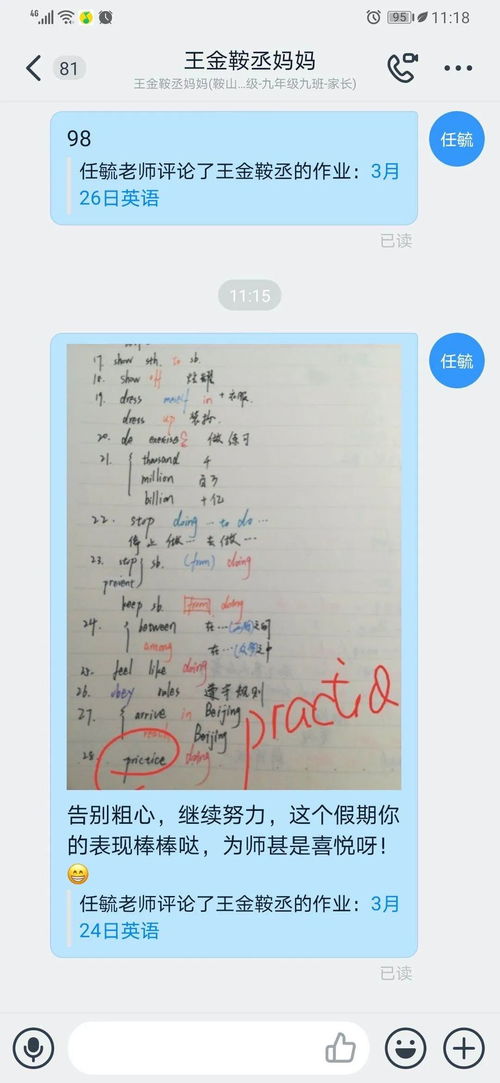 4G 95 11:18
81
王金鞍丞妈妈
王金鞍丞妈妈(鞍山...级-九年级九班-家长)
98
任毓老师评论了王金鞍丞的作业：3月
26日英语
任毓
已读
11:15
任毓
17. show sth. to sb.
18. show off 炫耀
19. dress oneself in + 衣服.
dress up 装扮.
20. do exercises 做练习
21. { thousand 千
million 百万
billion 十亿
22. stop doing ... to do ...
停止做... 去做...
23. stop } sb. (from) doing
prevent
keep sb. from doing
24. { between 在…(两者)之间
among 在…(众多)之中
25. feel like doing
26. obey rules 遵守规则
27. { arrive in Beijing
reach Beijing
28. prictice doing
practic
告别粗心，继续努力，这个假期你
的表现棒棒哒，为师甚是喜悦呀！
😁
任毓老师评论了王金鞍丞的作业：3月
24日英语
已读